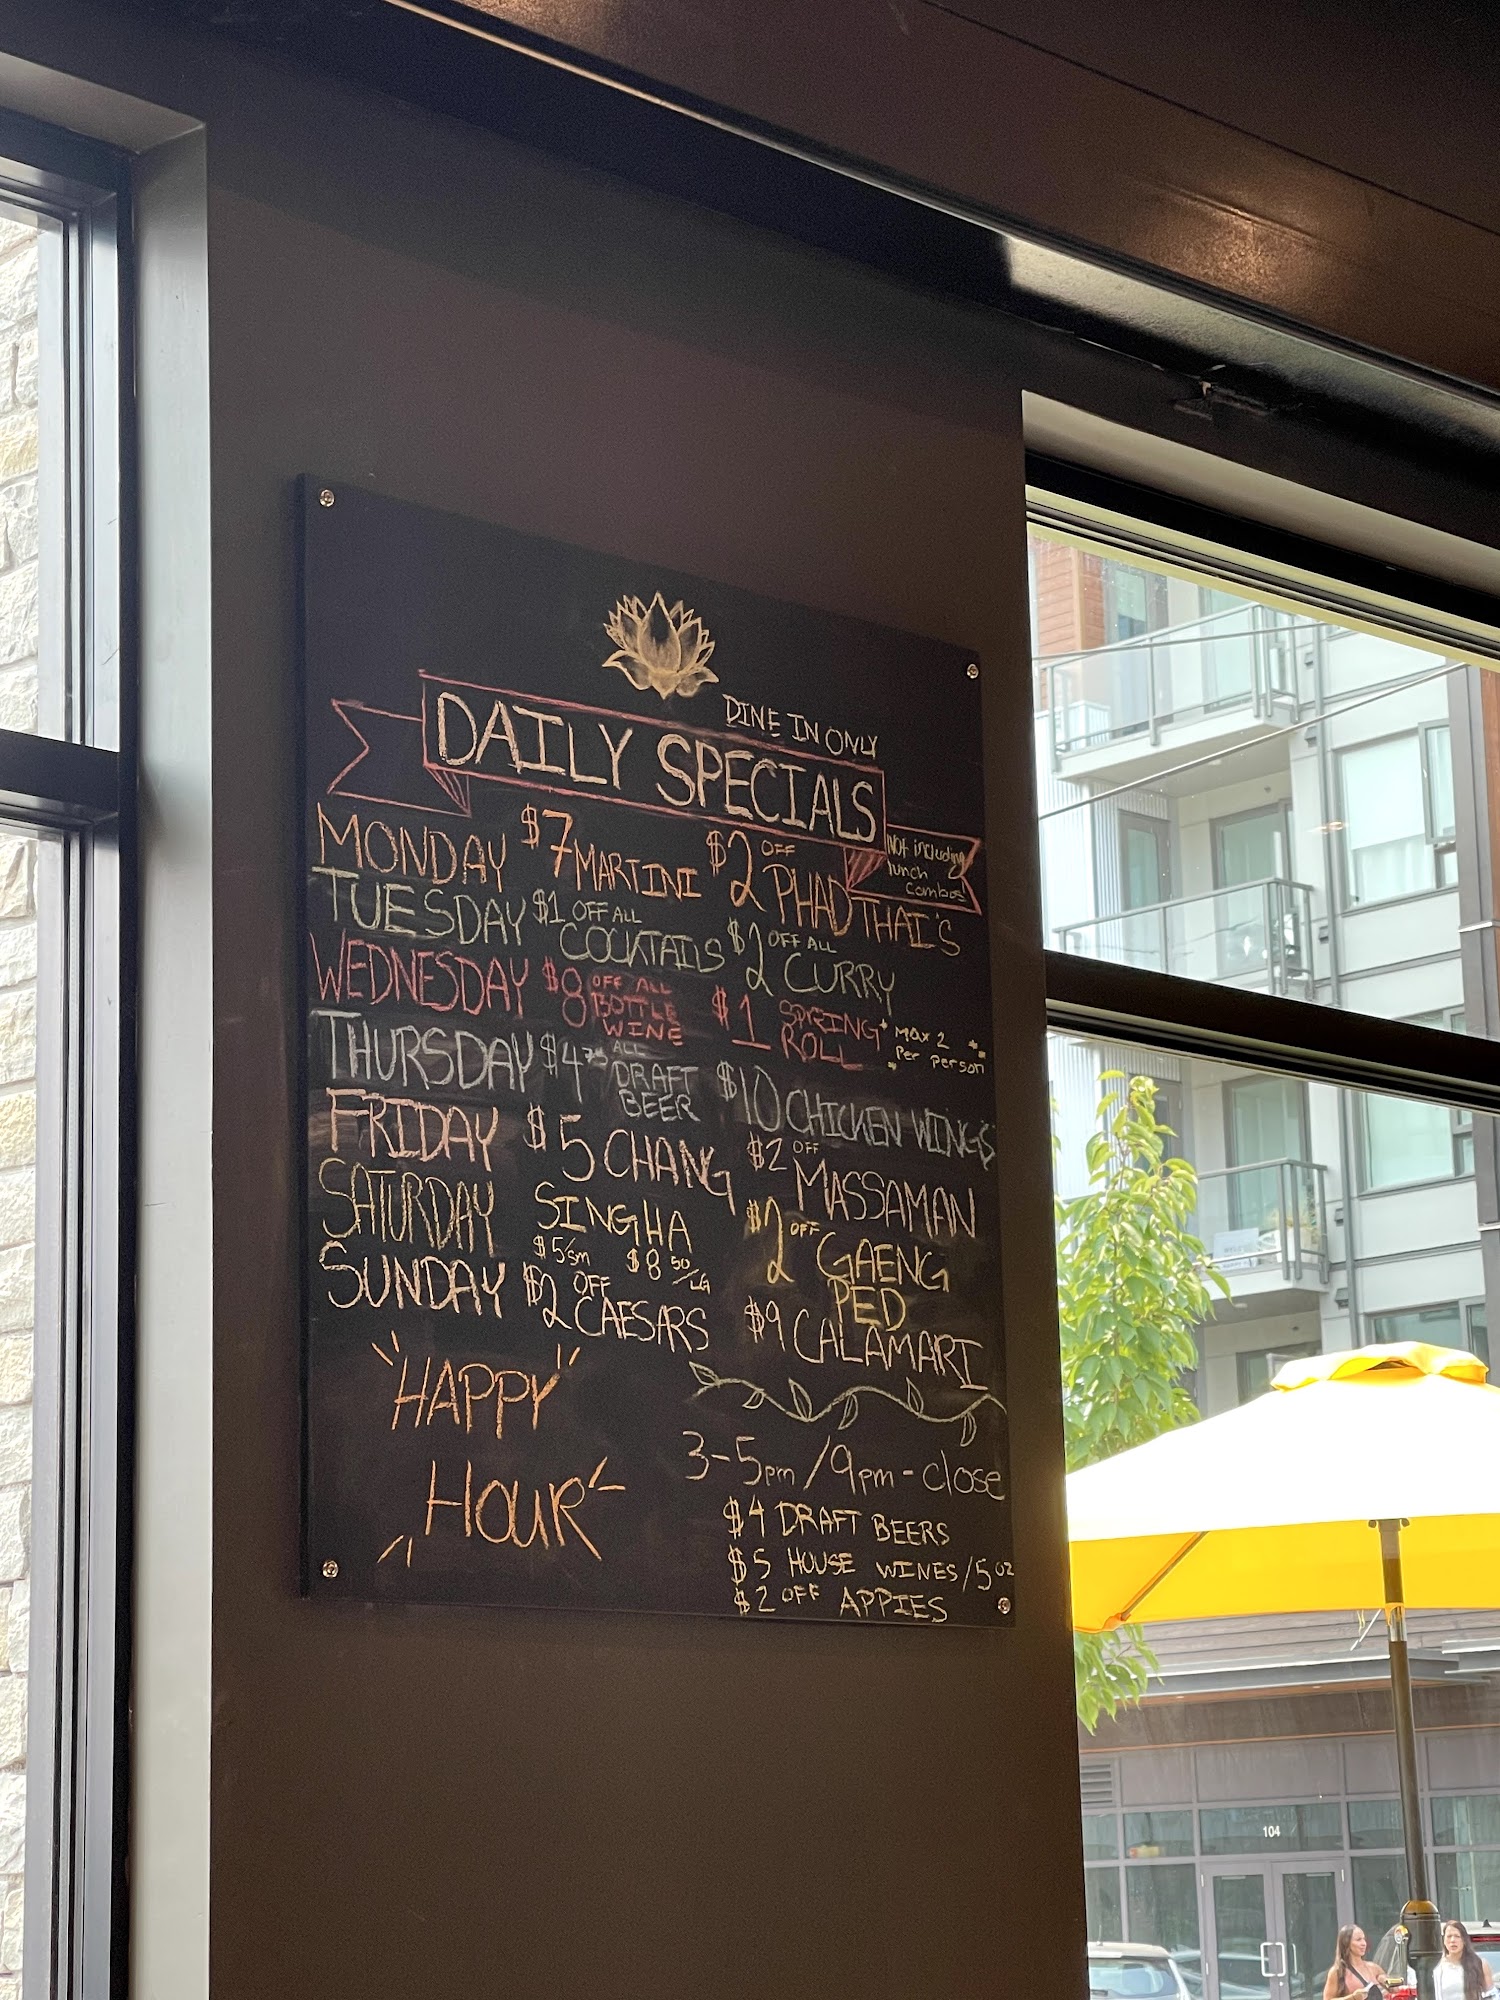 DINE IN ONLY
DAILY SPECIALS
Not including
lunch
combos
MONDAY $7 MARTINI $2 OFF PHAD THAI'S
TUESDAY $1 OFF ALL COCKTAILS $2 OFF ALL CURRY
WEDNESDAY $8 OFF ALL BOTTLE WINE $1 SPRING ROLL * Max 2 Per person
THURSDAY $4 ALL DRAFT BEER $10 CHICKEN WINGS
FRIDAY $5 CHANG $2 OFF MASSAMAN
SATURDAY SINGHA $5/sm $8 50/LG $2 OFF GAENG PED
SUNDAY $2 OFF CAESARS $9 CALAMARI
HAPPY
HOUR
3-5pm/9pm-close
$4 DRAFT BEERS
$5 HOUSE WINES/5oz
$2 OFF APPIES
104